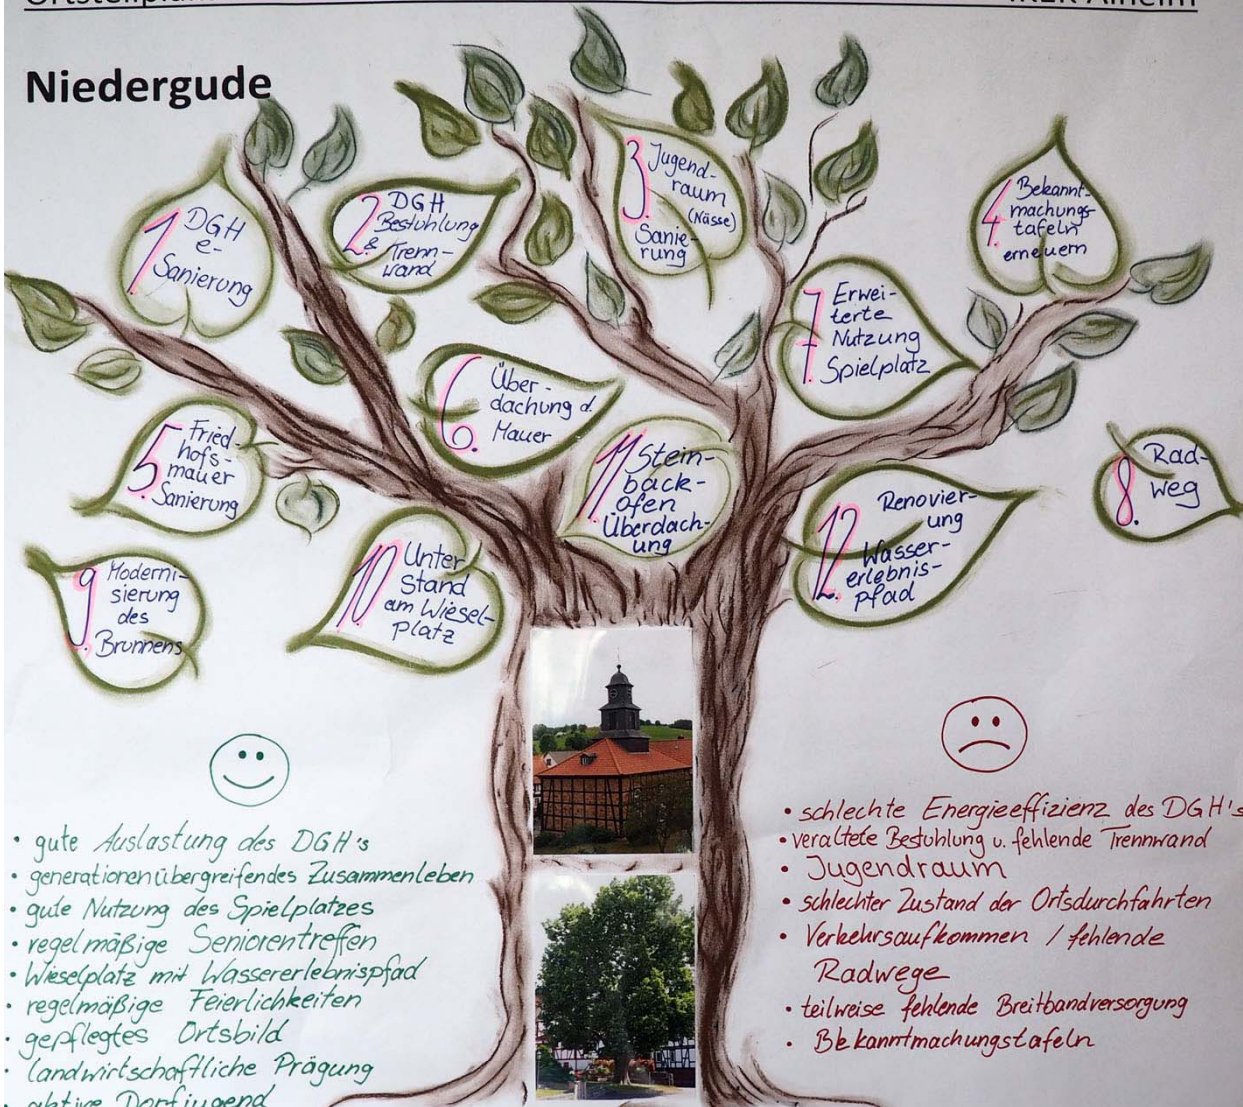 Niedergude
1. DGH
e-
Sanierung
2. DGH
Bestuhlung
& Trenn-
wand
3. Jugend-
raum
(Nässe)
Sanie-
rung
4. Bekannt-
machungs-
tafeln
erneuern
5. Fried-
hofs-
mauer
Sanierung
6. Über-
dachung d.
Mauer
7. Erwei-
terte
Nutzung
Spielplatz
8. Rad-
weg
9. Moderni-
sierung
des
Brunnens
10. Unter
Stand
am Wiesel-
platz
11. Stein-
back-
ofen
Überdach-
ung
12. Renovier-
ung
Wasser-
erlebnis-
pfad
• gute Auslastung des DGH's
• generationenübergreifendes Zusammenleben
• gute Nutzung des Spielplatzes
• regelmäßige Seniorentreffen
• Wieselplatz mit Wassererlebnispfad
• regelmäßige Feierlichkeiten
• gepflegtes Ortsbild
• landwirtschaftliche Prägung
• aktive Dorfjugend
• schlechte Energieeffizienz des DGH's
• veraltete Bestuhlung u. fehlende Trennwand
• Jugendraum
• schlechter Zustand der Ortsdurchfahrten
• Verkehrsaufkommen / fehlende
Radwege
• teilweise fehlende Breitbandversorgung
• Bekanntmachungstafeln